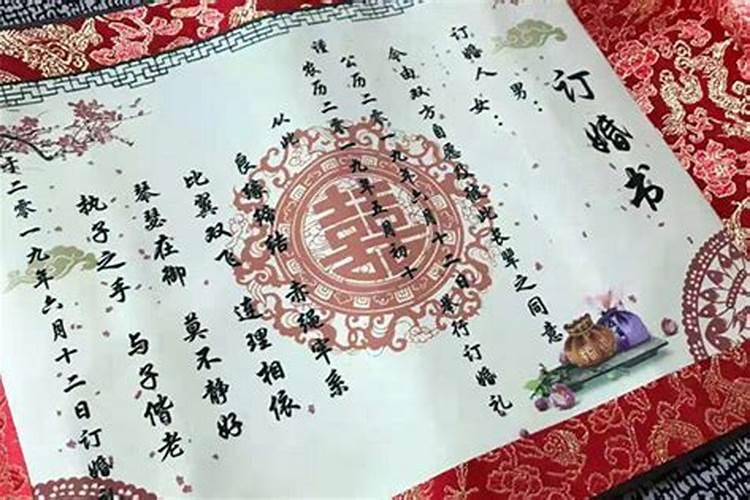 订婚书
订婚人 男：
女：
今由双方自愿及此长辈之同意
公历二零一九年六月十二日举行订婚礼
谨农历二零一九年五月初十
从此
良缘缔结 赤绳牢系
比翼双飞 连理相依
琴瑟在御 莫不静好
执子之手 与子偕老
于二零一九年六月十二日订婚